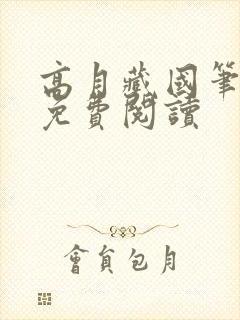 高月藏國筆
免費閱讀
會員包月